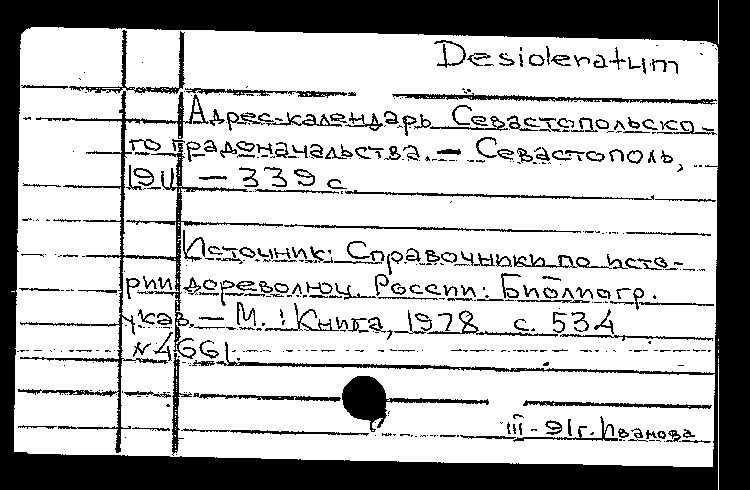 Desideratum
Адрес-календарь Севастопольско-
го градоначальства. — Севастополь,
1911 — 339 с.
Источник: Справочники по исто-
рии дореволюц. России: Библиогр.
указ. — М.: Книга, 1978 с. 534,
N 4661.
III - 91г. Иванова